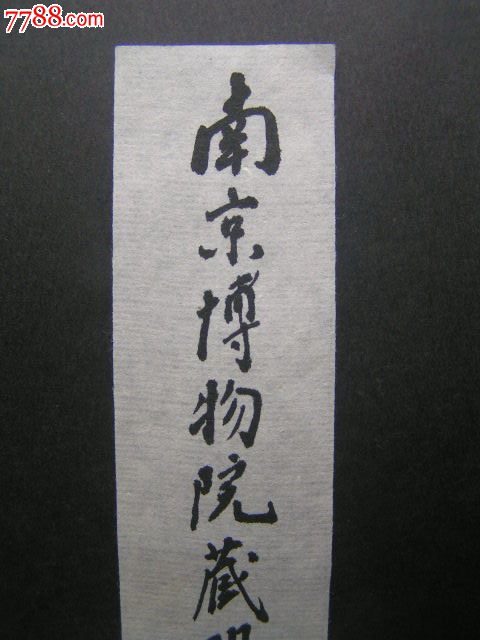 7788.com
南京博物院藏